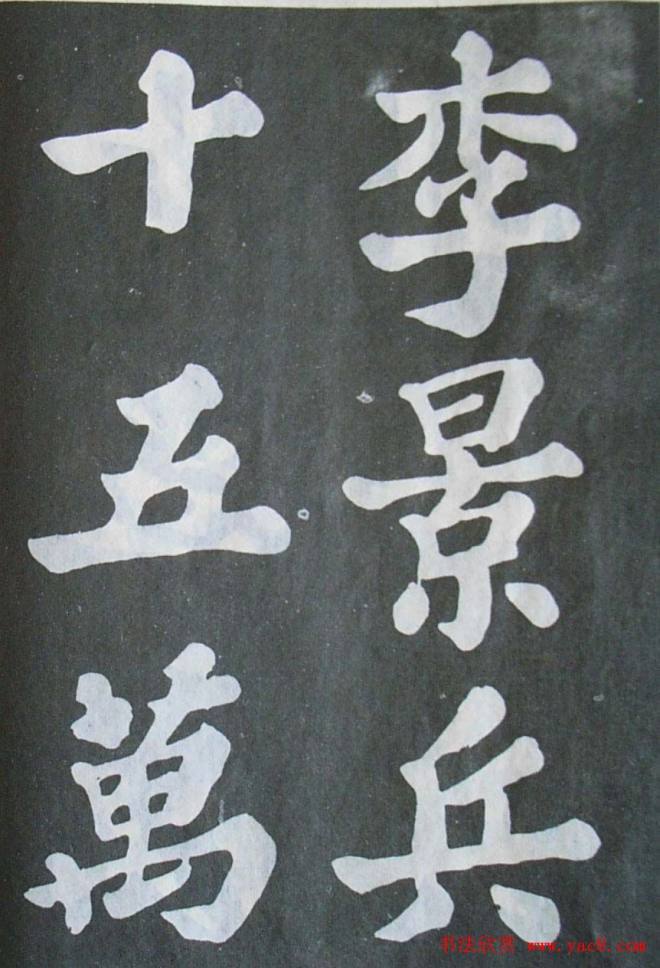 李景兵
十五萬
书法欣赏 www.yac8.com